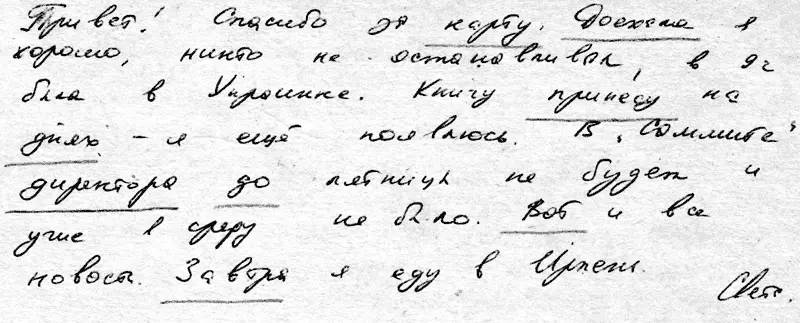 Привет! Спасибо за карту. Доехала я
хорошо, никто не останавливал, в 9 ч
была в Украинке. Книгу принесу на
днях – я ещё появлюсь. В „Саммите"
директора до пятницы не будет и
уже в среду не было. Вот и все
новости. Завтра я еду в Ирпень.
Света.